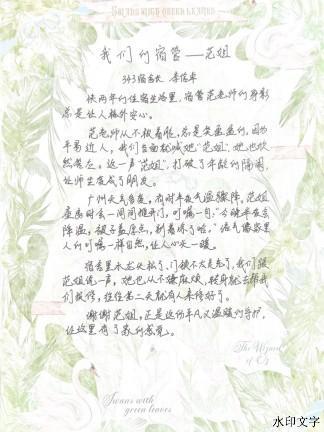 SWANS WITH GREEN LEAVES
我们的宿管——范姐
343宿舍长 李佳卓
快两年的住宿生活里，宿管范老师的身影
总是让人格外安心。
范老师从不板着脸，总是笑盈盈的，因为
平易近人，我们当面就喊她"范姐"，她也欣
然答应。这一声"范姐"，打破了年龄的隔阂，
让师生变成了朋友。
广州天气多变，有时半夜气温骤降，范姐
查寝时会一间间推开门，叮嘱一句："今晚半夜会
降温，被子盖厚点，别着凉了哈。"语气像家里
人的叮嘱一样自然，让人心头一暖。
宿舍里水龙头松了、门锁不太灵光了，我们跟
范姐说一声，她也从不嫌麻烦，转身就去帮我
们报修，往往第二天就有人来修好了。
谢谢范姐，正是这份平凡又温暖的守护，
让这里有了家的感觉。
The Wizard
of Oz
Swans with
green leaves
水印文字